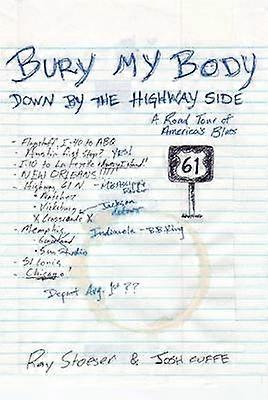 BURY MY BODY
DOWN BY THE HIGHWAY SIDE
A Road Tour of
America's Blues
- Flagstaff, I-40 to ABQ
- Austin (6th Stage? YES!
- I-10 to Lafayette
- NEW ORLEANS!!!!
- Highway 61 N
- Natchez
- Vicksburg
Jackson
detour
X Crossroads X
- Memphis
Indianola - B.B. King
- Graceland
- Sun Studio
- St Louis
- Chicago!
61
Depart Aug. 1st ??
Ray Stoeser & JOSH CUFFE